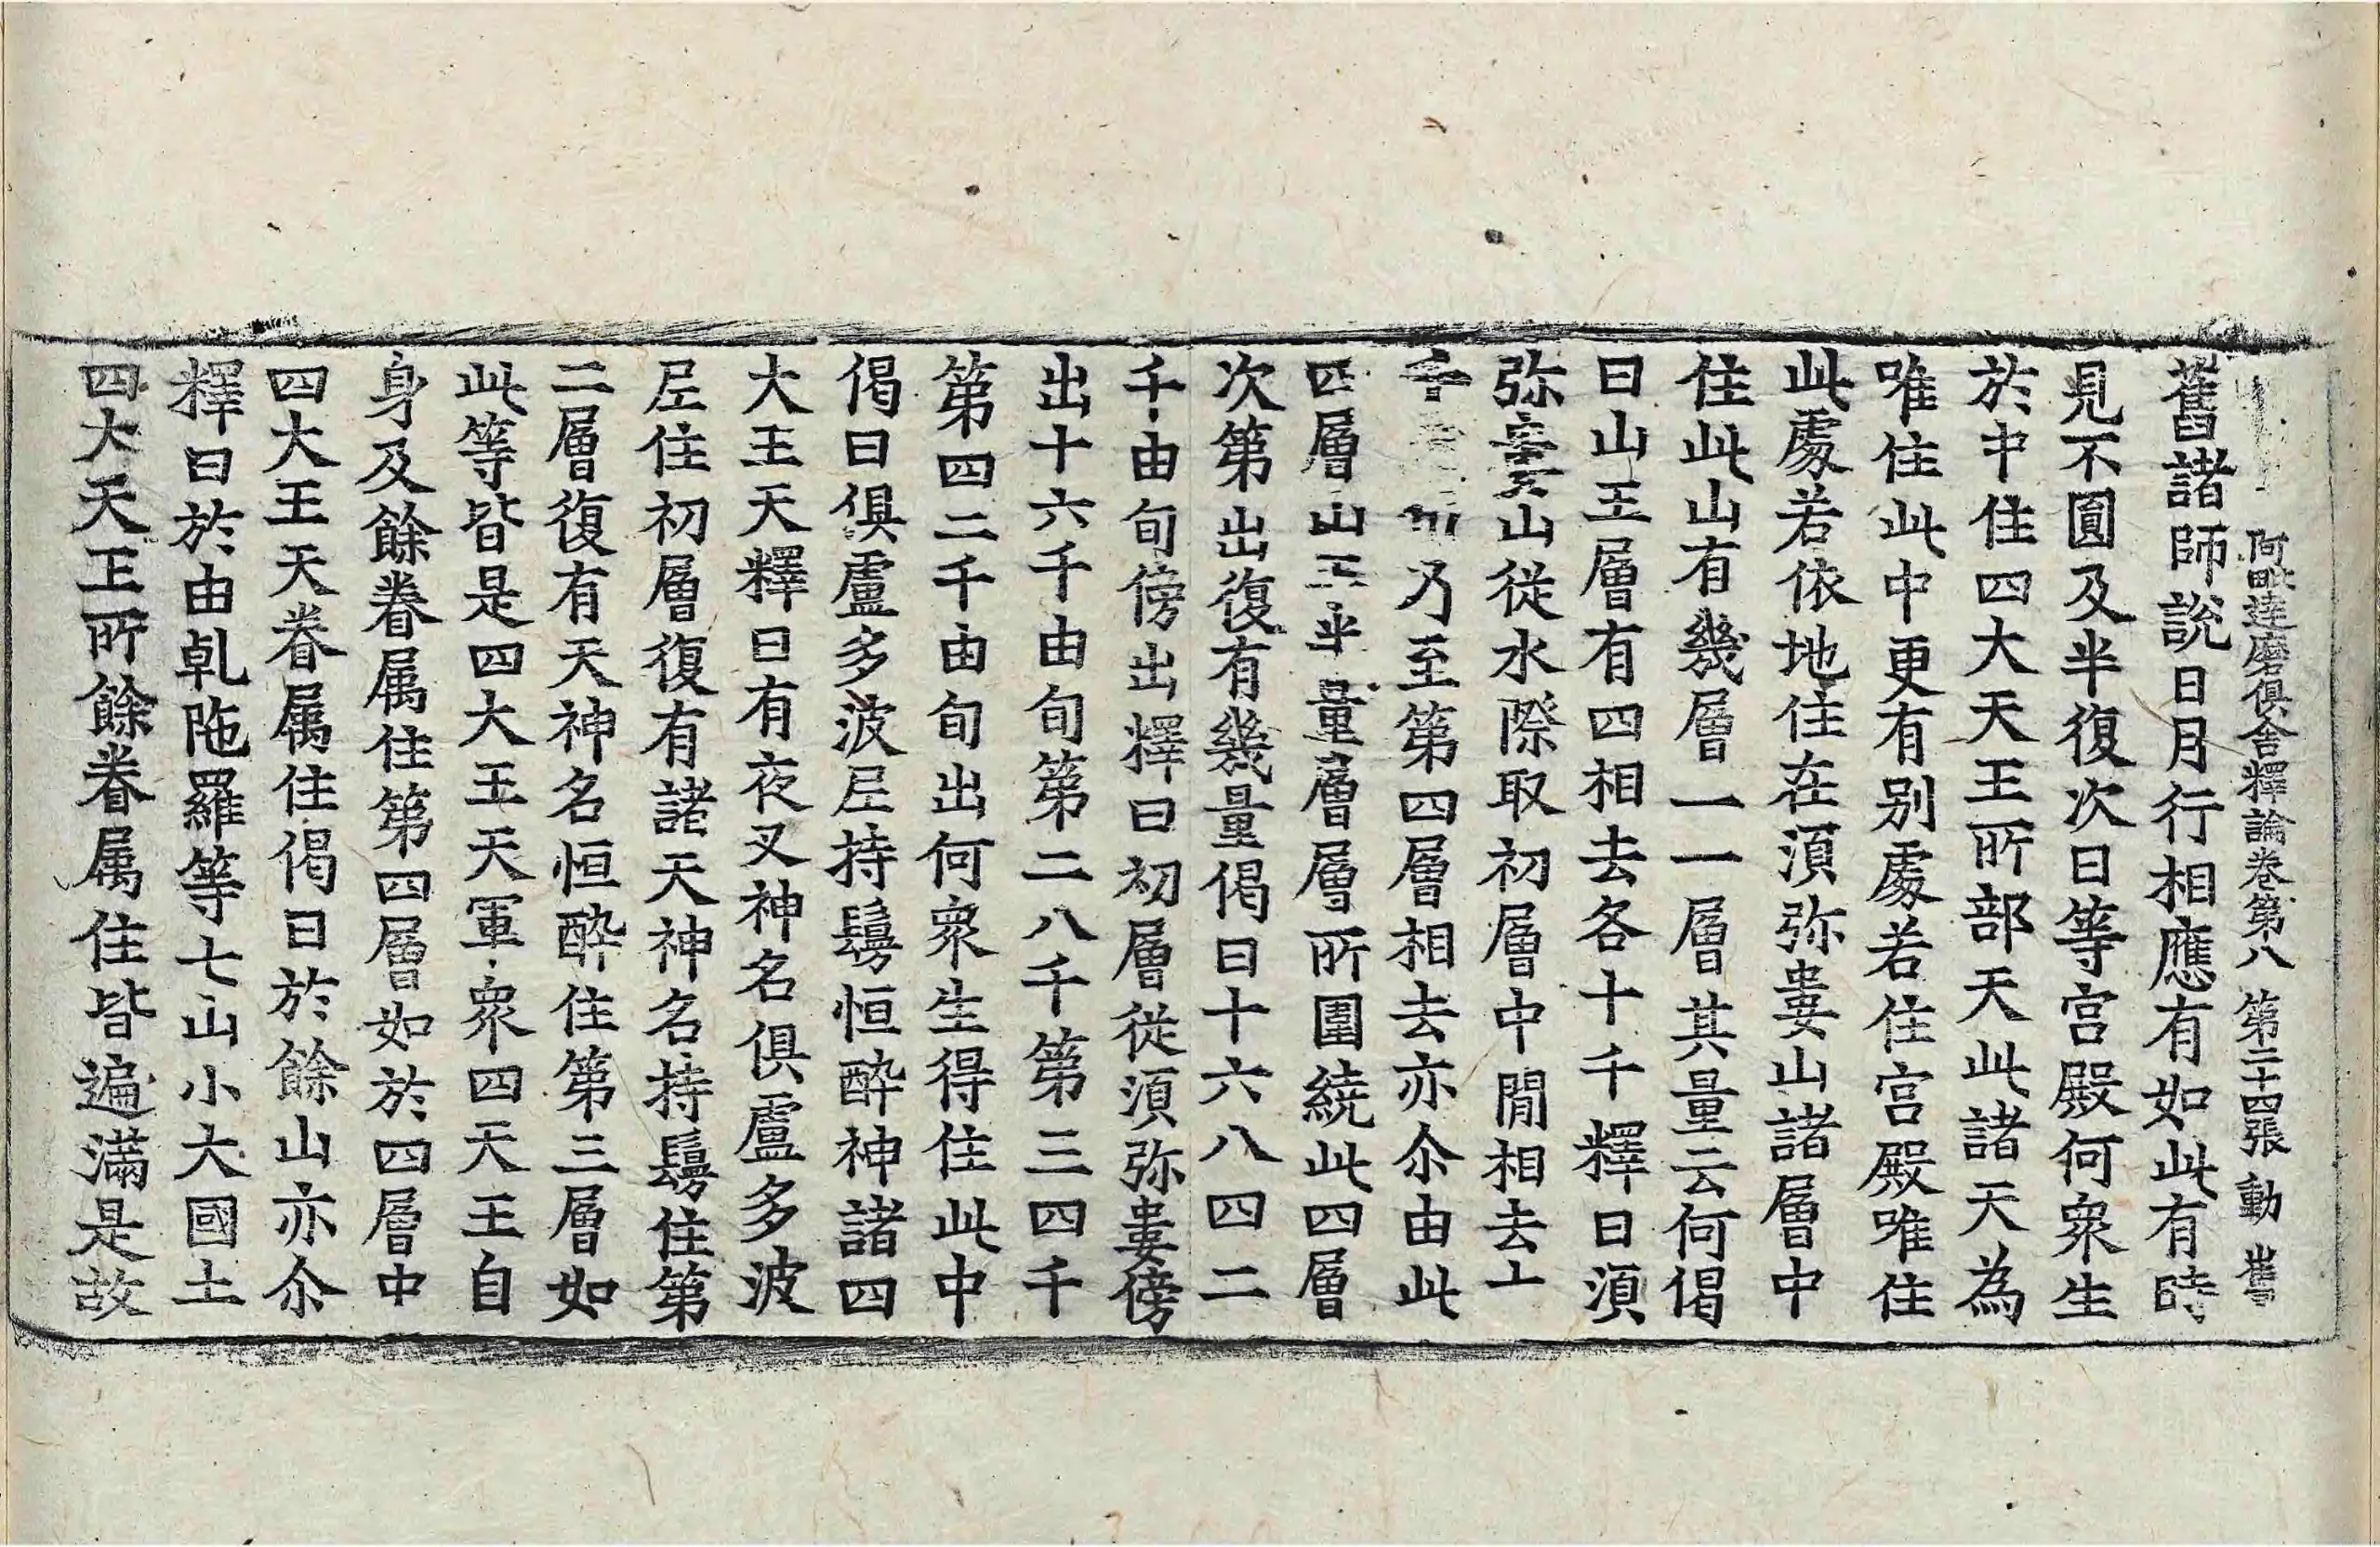 阿毗達磨俱舍釋論卷第八 第二十四張 動
舊諸師說日月行相應有如此有時
見不圓及半復次日等宮殿何衆生
於中住四大天王所部天此諸天為
唯住此中更有別處若住宮殿唯住
此處若依地住在湏弥婁山諸層中
住此山有幾層一一層其量云何偈
曰山王層有四相去各十千釋曰湏
弥婁山從水際取初層中間相去十
千乃至第四層相去亦尒由此
四層山王半量層層所圍繞此四層
次第出復有幾量偈曰十六八四二
千由旬傍出釋曰初層從湏弥婁傍
出十六千由旬第二八千第三四千
第四二千由旬出何衆生得住此中
偈曰俱盧多波𡱝持鬘恒醉神諸四
大王天釋曰有夜叉神名俱盧多波
𡱝住初層復有諸天神名持鬘住第
二層復有天神名恒醉住第三層如
此等皆是四大王天軍衆四天王自
身及餘眷属住第四層如於四層中
四大王天眷属住偈曰於餘山亦尒
釋曰於由乹陁羅等七山小大國土
四大天王所餘眷属住皆遍滿是故